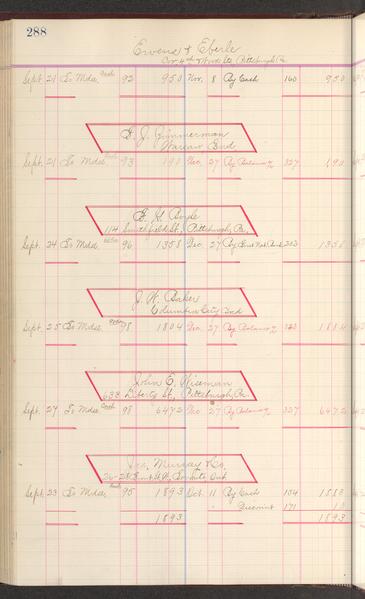 288
Ewens & Eberle
Cor 4th & Wood Sts, Pittsburgh, Pa.
Sept. 21 To Mdse. 92 950 Nov. 8 By Cash 160 950
G. J. Zimmerman
Warsaw Ind
Sept. 21 To Mdse. 93 190 Dec. 27 By Balance 327 190
E. H. Boyle
114 Smithfield St., Pittsburgh, Pa.
Sept. 24 To Mdse. 96 1358 Dec. 27 By 1358
J. W. Baker
Columbia City Ind
Sept. 25 To Mdse. 98 1804 Dec. 27 By Balance 1804
John E. Wiseman
638 Liberty St., Pittsburgh, Pa.
Sept. 27 To Mdse. 98 6472 Dec. 27 By Balance 327 6472
Jas. Murray & Co.
Sept. 23 To Mdse. 95 1893 Oct. 11 By Cash 154
Discount 171
1893 1893